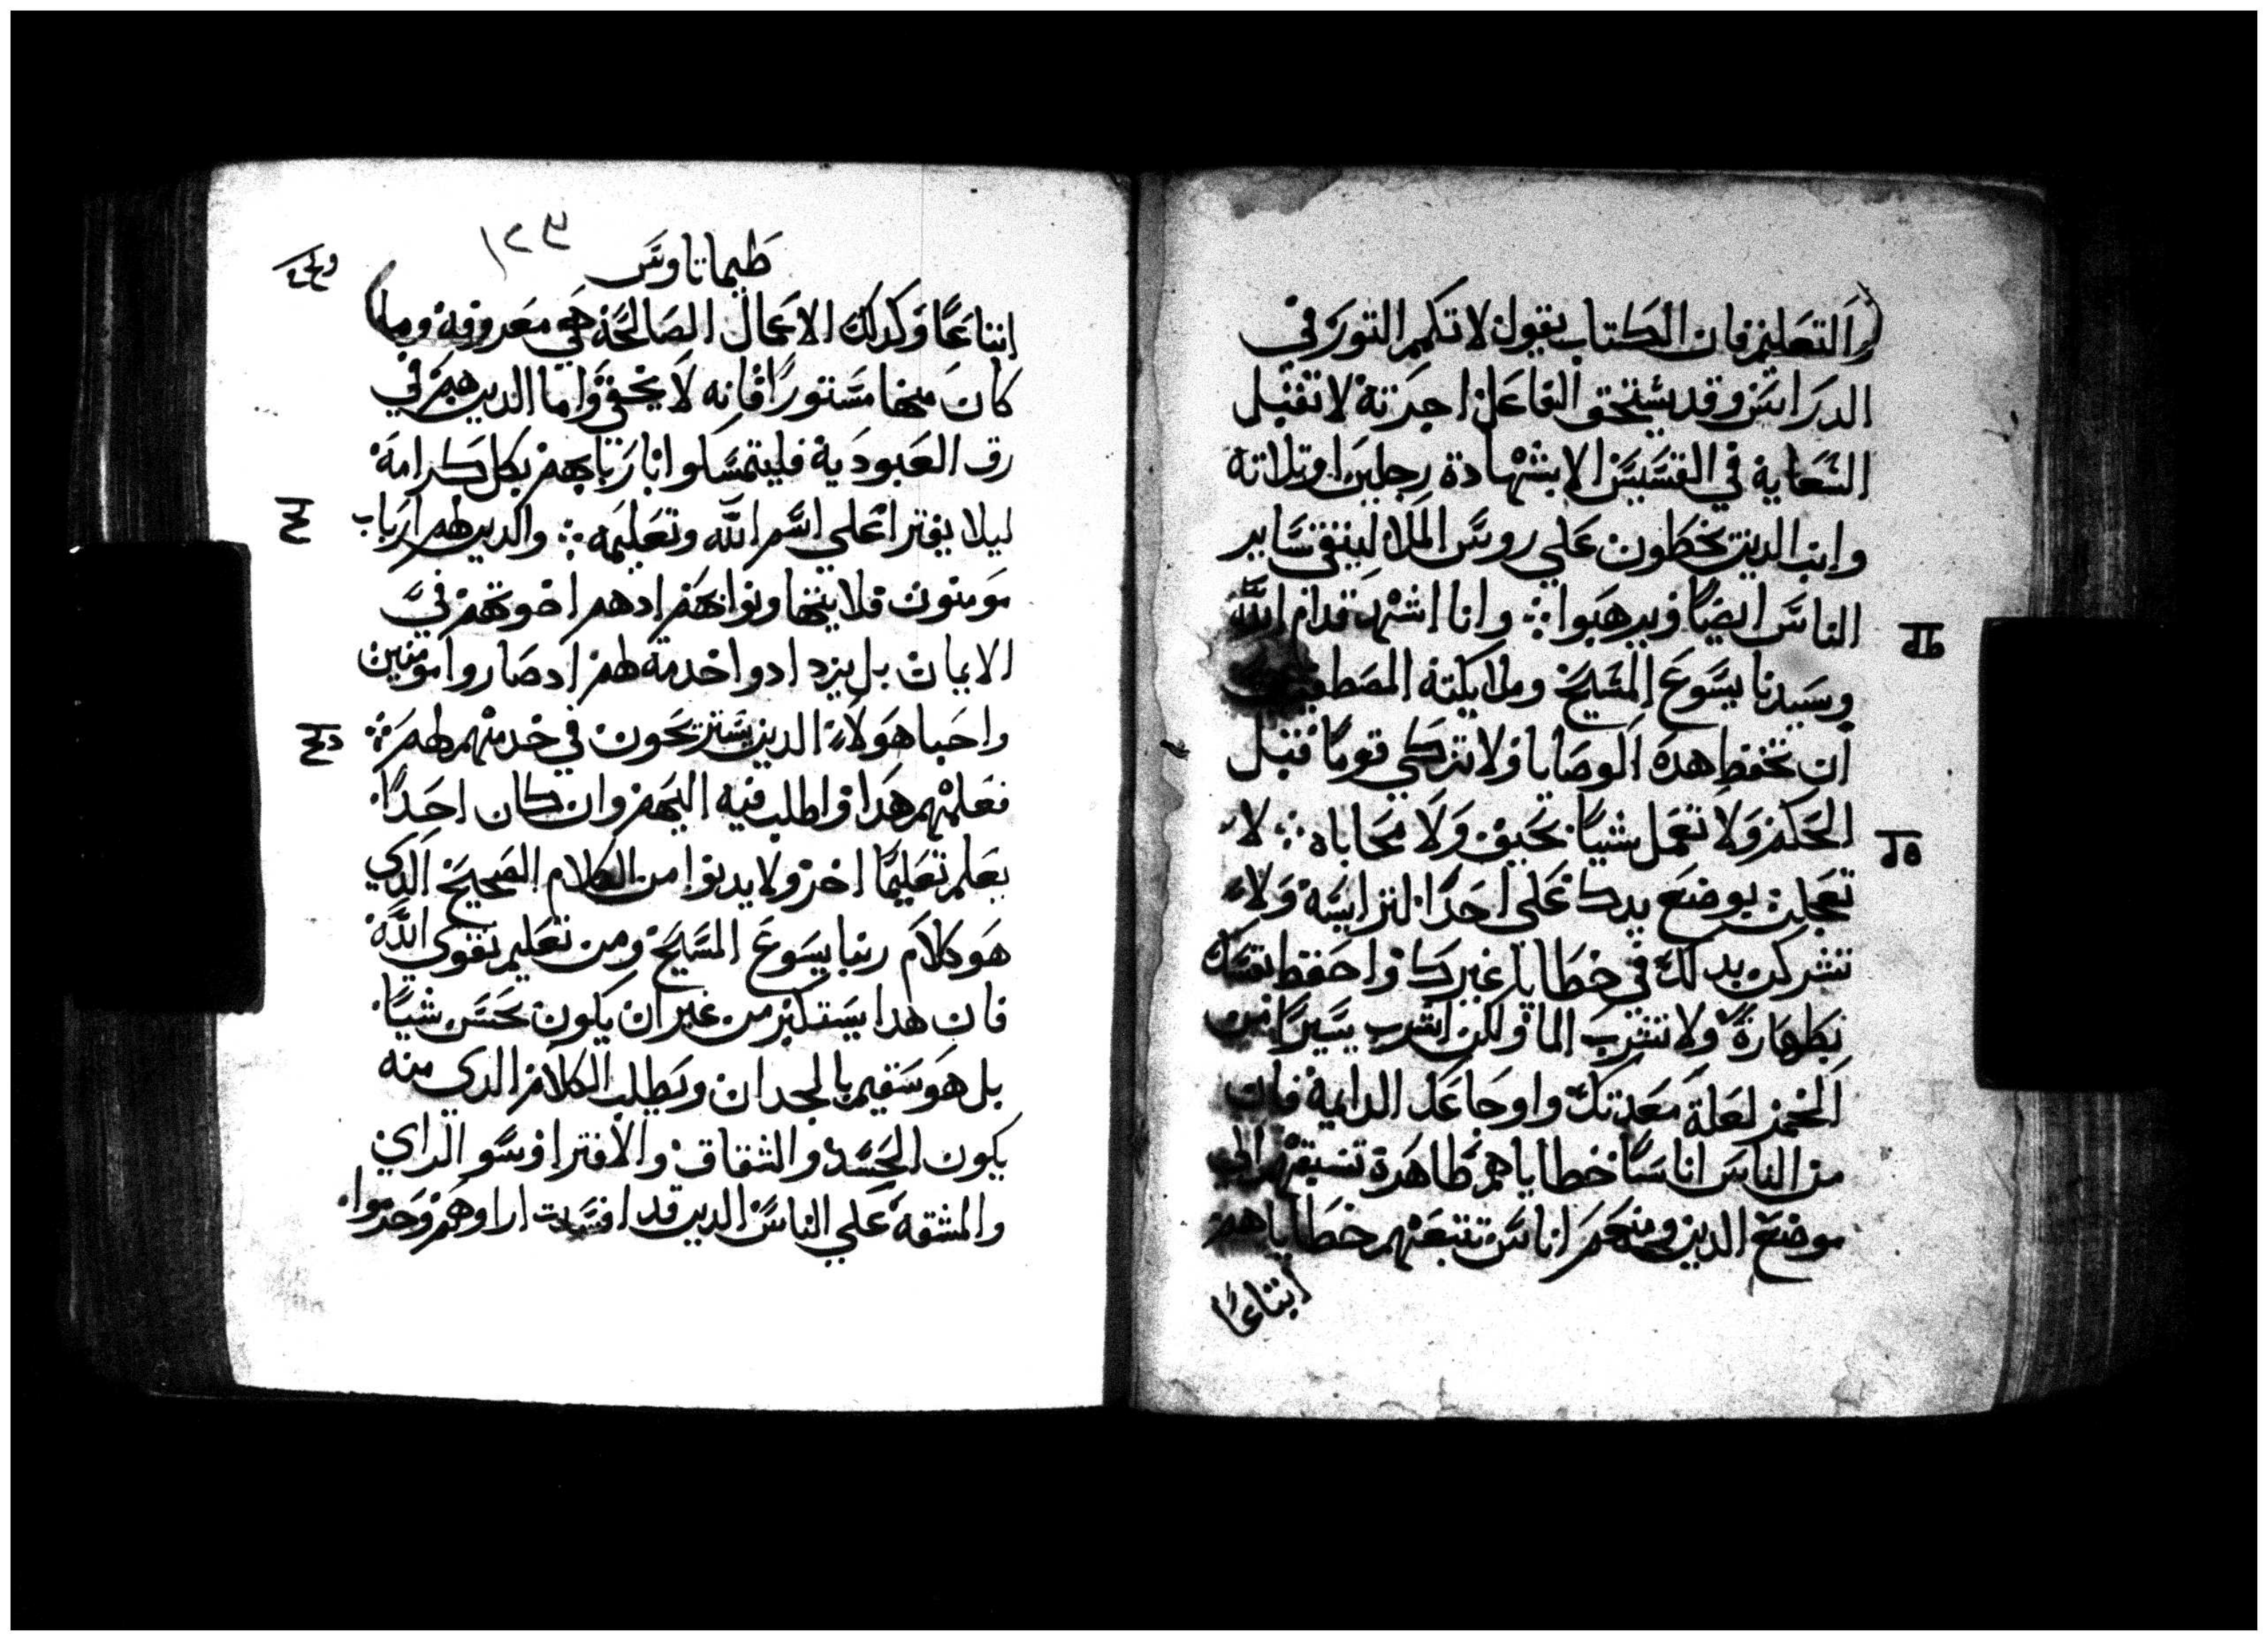 والتعليم فان الكتاب يقول لا تكمم التور في
الدراس وقد يستحق الفاعل اجرته لا تقبل
السعاية في القسيس الا بشهادة رجلين او تلاته
وانب الدين يخطون علي روس الملا لينقي ساير
الناس ايضا ويرهبوا وانا اشهد قدام الله
وسيدنا يسوع المسيح وملايكته المصطفين
ان تحفظ هده الوصايا ولا تزكي قوما قبل
الحكم ولا تعمل شييا بحيف ولا محاباه لا
تعجلن بوضع يدك علي احدا لتراييسه ولا
تشركن يدلك في خطايا غيرك واحفظ نفسك
بطهارة ولا تشرب الما ولكن اشرب يسيرا من
الخمر لعلة معدتك واوجاعك الدايمة فان
من الناس اناسا خطاياهم ظاهرة تسبقهم الي
موضع الدين ومنهم اناس تتبعهم خطاياهم
اتباعا
طيماتاوس
اتباعا وكدلك الاعمال الصالحة هي معروفة وما
كان منها مستورا فانه لا يخفي واما الدين هم في
رق العبودية فليتمسكوا باربابهم بكل كرامة
ليلا يفترا علي اسم الله وتعليمه والدين لهم ارباب
مومنون فلا يتهاونوا بهم ادهم اخوتهم في
الايمان بل يزدادوا خدمة لهم اد صاروا مومنين
واحبا هولاء الدين يستريحون في خدمتهم لهم
فعلمهم هدا واطلب فيه اليهم وان كان احدا
يعلم تعليما اخر ولا يدنوا من الكلام الصحيح الدي
هو كلام ربنا يسوع المسيح ومن تعليم تقوي الله
فان هدا يستكبر من غير ان يكون يحسن شييا
بل هو سقيم بالجدان ويطلب الكلام الدي منه
يكون الحسد والشقاق والافترا وسو الراي
والمشقة علي الناس الدين قد افسدت اراوهم وحرموا